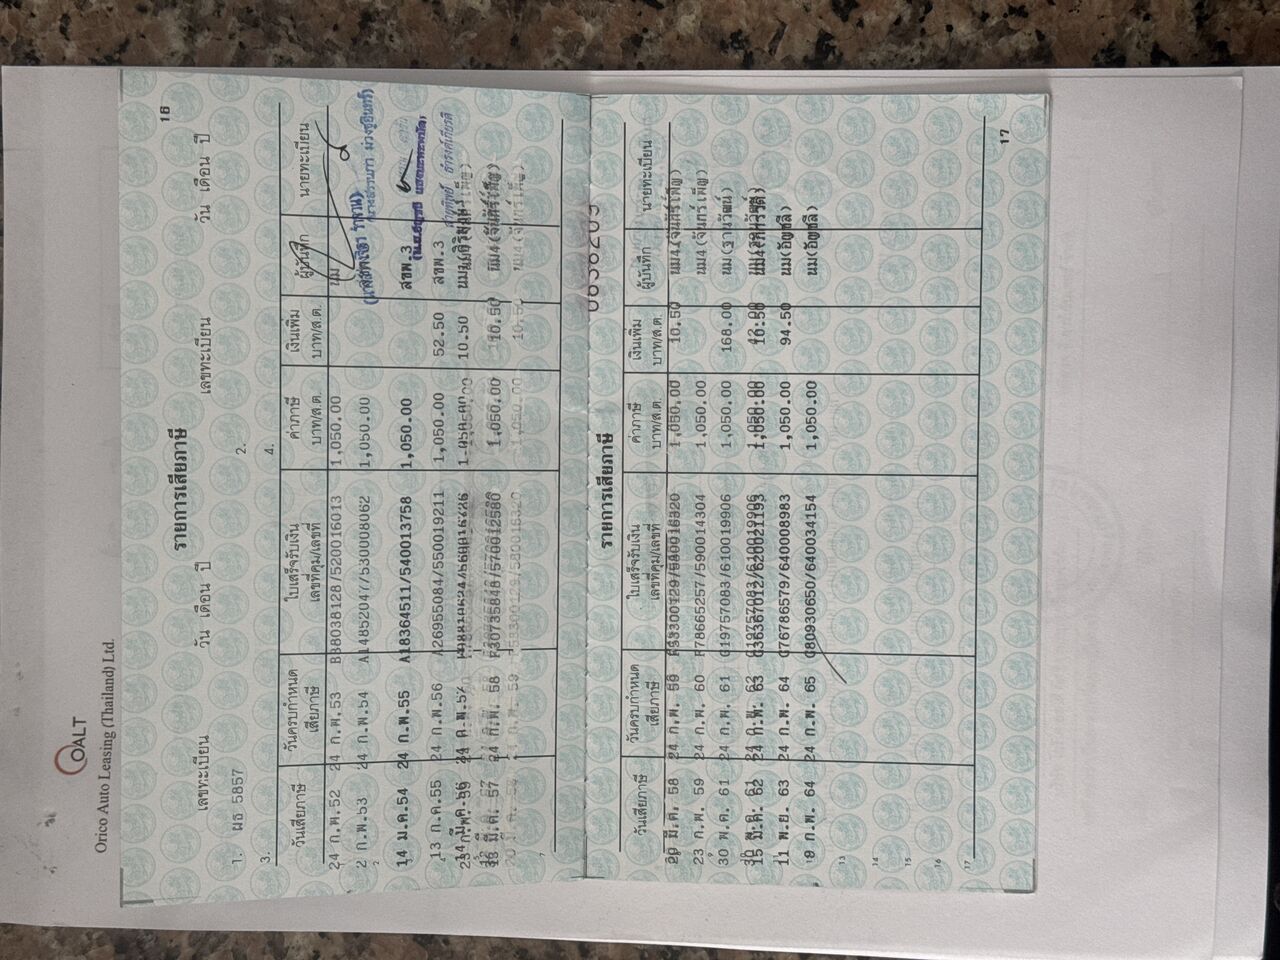 OALT
Orico Auto Leasing (Thailand) Ltd.
16
รายการเสียภาษี
เลขทะเบียน วัน เดือน ปี เลขทะเบียน วัน เดือน ปี
1. ผธ 5857 2.
3. 4.
วันเสียภาษี วันครบกำหนดเสียภาษี ใบเสร็จรับเงินเล่มที่คุม/เลขที่ ค่าภาษี บาท/ส.ต. เงินเพิ่ม บาท/ส.ต. ผู้บันทึก นายทะเบียน
24 ก.พ.52 24 ก.พ.53 B38038128/520016013 1,050.00 นม
2 ก.พ.53 24 ก.พ.54 A14852047/530008062 1,050.00
14 ม.ค.54 24 ก.พ.55 A18364511/540013758 1,050.00 สขพ.3
13 ก.ค.55 24 ก.พ.56 A26955084/550019211 1,050.00 52.50 สขพ.3
24 ก.พ.57 10.50
13 มี.ค. 57 24 ก.พ. 58 F30735848/570012580 1,050.00 10.50 นม4(จันทร์เพ็ญ)
24 ก.พ. 59 1,050.00 10.50 นม4(จันทร์เพ็ญ)
17
รายการเสียภาษี
วันเสียภาษี วันครบกำหนดเสียภาษี ใบเสร็จรับเงินเล่มที่คุม/เลขที่ ค่าภาษี บาท/ส.ต. เงินเพิ่ม บาท/ส.ต. ผู้บันทึก นายทะเบียน
20 มี.ค. 58 24 ก.พ. 59 1,050.00 10.50 นม4(จันทร์เพ็ญ)
23 ก.พ. 59 24 ก.พ. 60 F78665257/590014304 1,050.00 นม4(จันทร์เพ็ญ)
30 พ.ค. 61 24 ก.พ. 61 G19757083/610019906 1,050.00 168.00 นม(ฐานวัฒน์)
15 มี.ค. 62 24 ก.พ. 63 G36367012/620021193 1,050.00 10.50
11 พ.ย. 63 24 ก.พ. 64 G76786579/640008983 1,050.00 94.50 นม(อัญชลี)
9 ก.พ. 64 24 ก.พ. 65 G80930650/640034154 1,050.00 นม(อัญชลี)
13
14
15
16
17